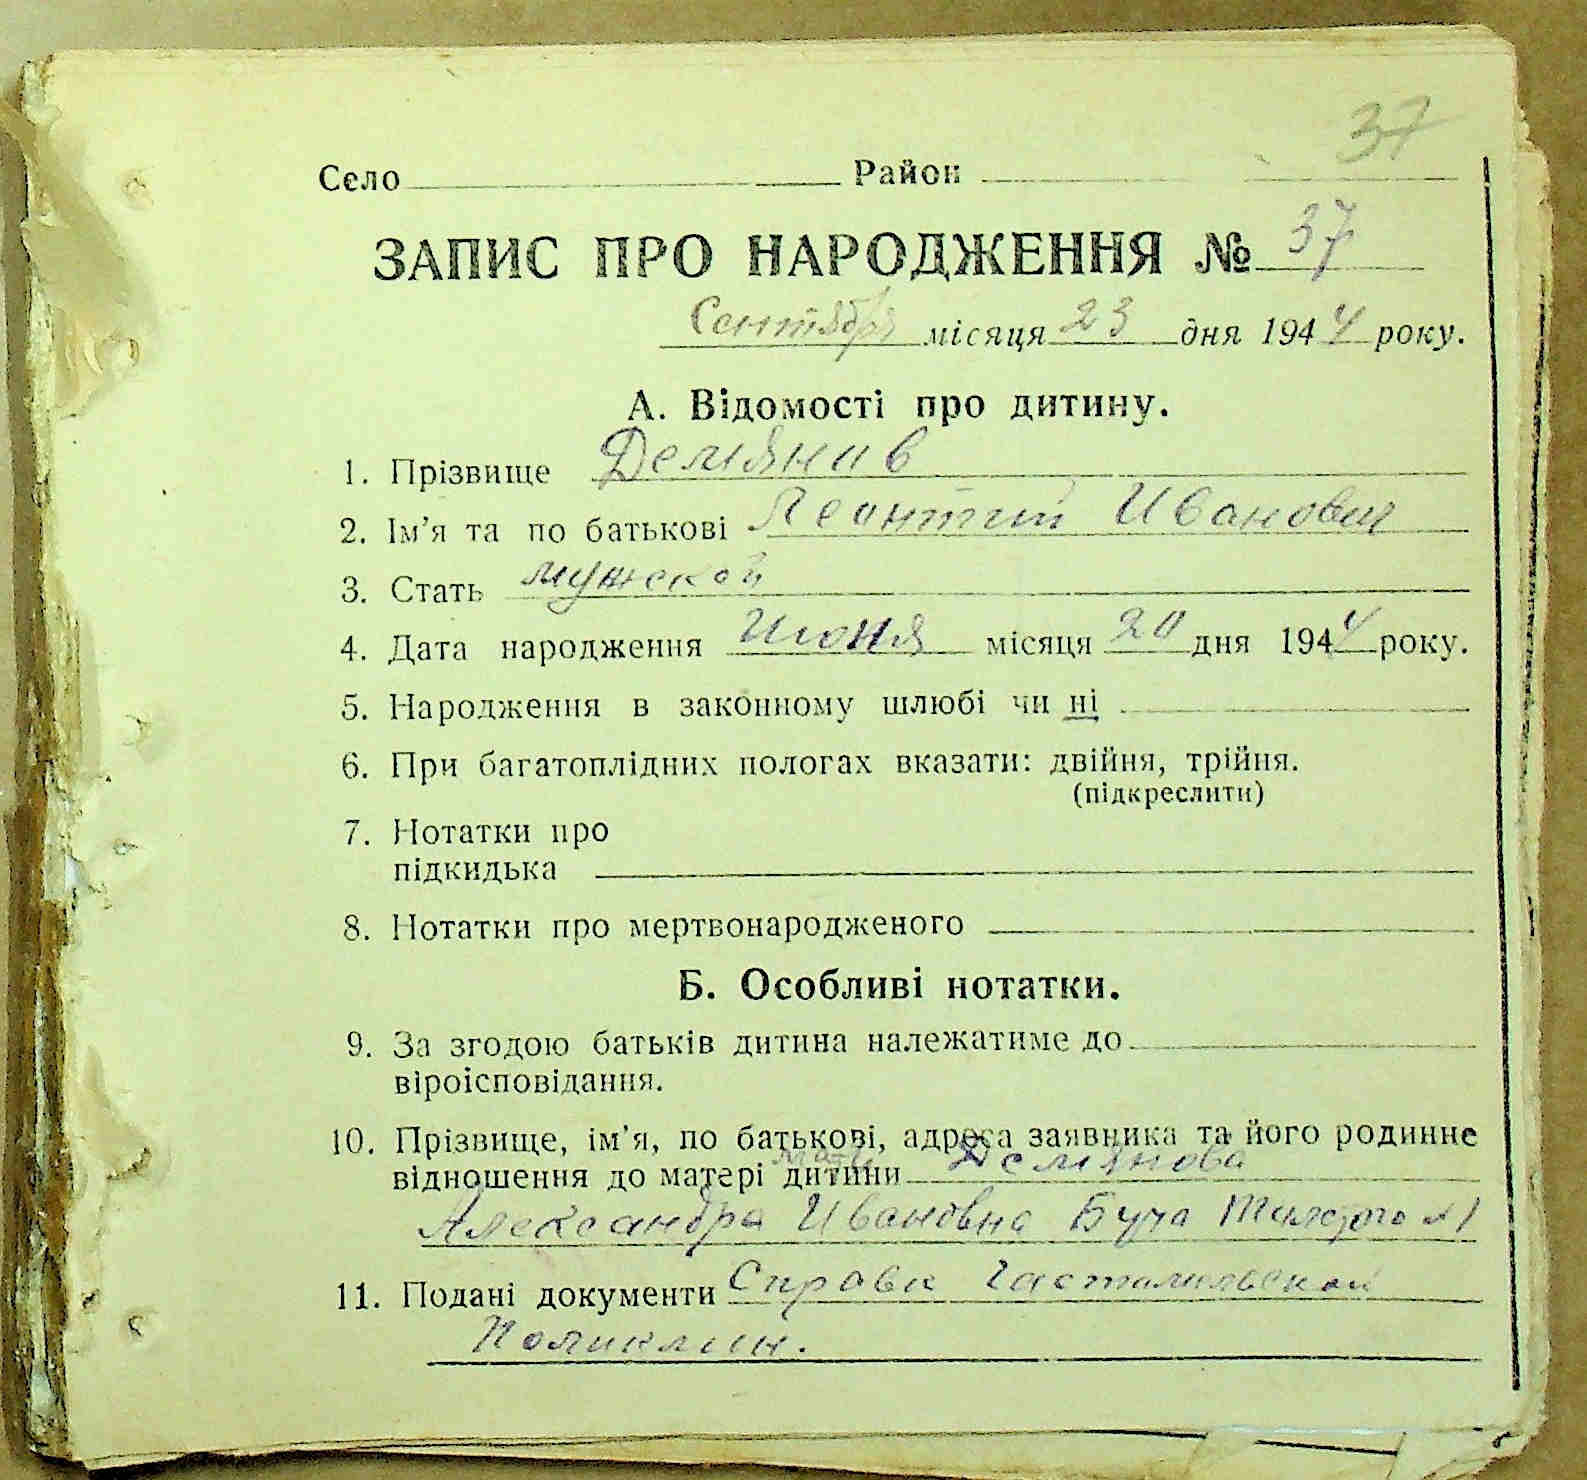 37
Село Район
ЗАПИС ПРО НАРОДЖЕННЯ № 37
Сентября місяця 23 дня 1944 року.
А. Відомості про дитину.
1. Прізвище Демянив
2. Ім'я та по батькові Леонтий Иванович
3. Стать мужской
4. Дата народження Июня місяця 20 дня 1944 року.
5. Народження в законному шлюбі чи ні
6. При багатоплідних пологах вказати: двійня, трійня.
(підкреслити)
7. Нотатки про
підкидька
8. Нотатки про мертвонародженого
Б. Особливі нотатки.
9. За згодою батьків дитина належатиме до
віроісповідання.
10. Прізвище, ім'я, по батькові, адреса заявника та його родинне
відношення до матері дитини мать Демянова
Александра Ивановна Буча Толстого №1
11. Подані документи Справка Гостомильской
Поликлин.